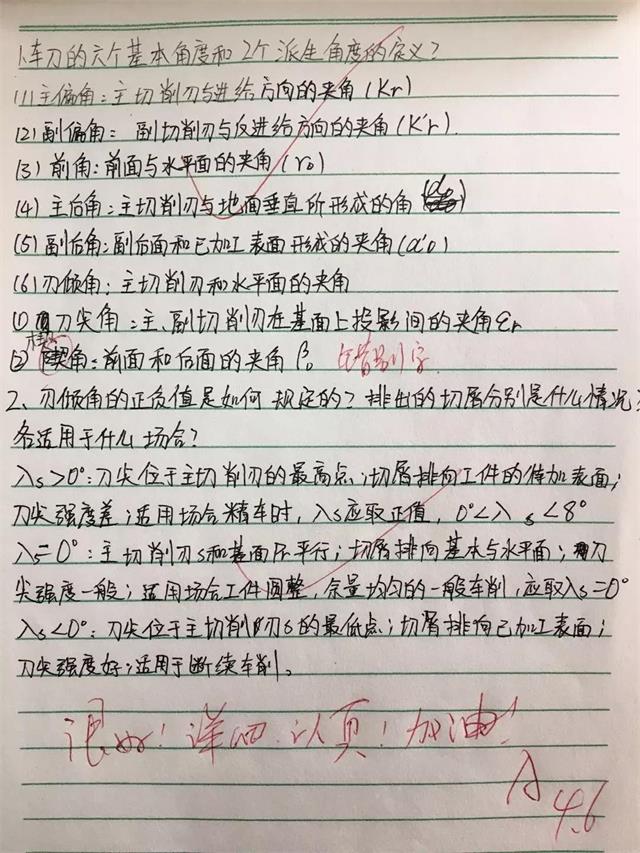 1.车刀的六个基本角度和2个派生角度的定义?
(1)主偏角:主切削刃与进给方向的夹角(Kr)
(2)副偏角: 副切削刃与反进给方向的夹角(K'r).
(3)前角:前面与水平面的夹角(r₀)
(4)主后角:主切削刃与地面垂直所形成的角(α₀)
(5)副后角:副后面和已加工表面形成的夹角(α'₀)
(6)刃倾角:主切削刃和水平面的夹角
(1)刀尖角:主、副切削刃在基面上投影间的夹角εr
(2)楔角:前面和后面的夹角β₀ 错别字
2、刃倾角的正负值是如何规定的?排出的切屑分别是什么情况?
各适用于什么场合?
λs>0°:刀尖位于主切削刃的最高点;切屑排向工件的待加表面;
刀尖强度差;适用场合精车时,λs应取正值,0°<λs<8°
λs=0°:主切削刃s和基面平行;切屑排向基本与水平面;刀
尖强度一般;适用场合工件圆整,余量均匀的一般车削,应取λs=0°
λs<0°:刀尖位于主切削刃s的最低点;切屑排向已加工表面;
刀尖强度好;适用于断续车削。
很好!详细.认真!加油!
4.6